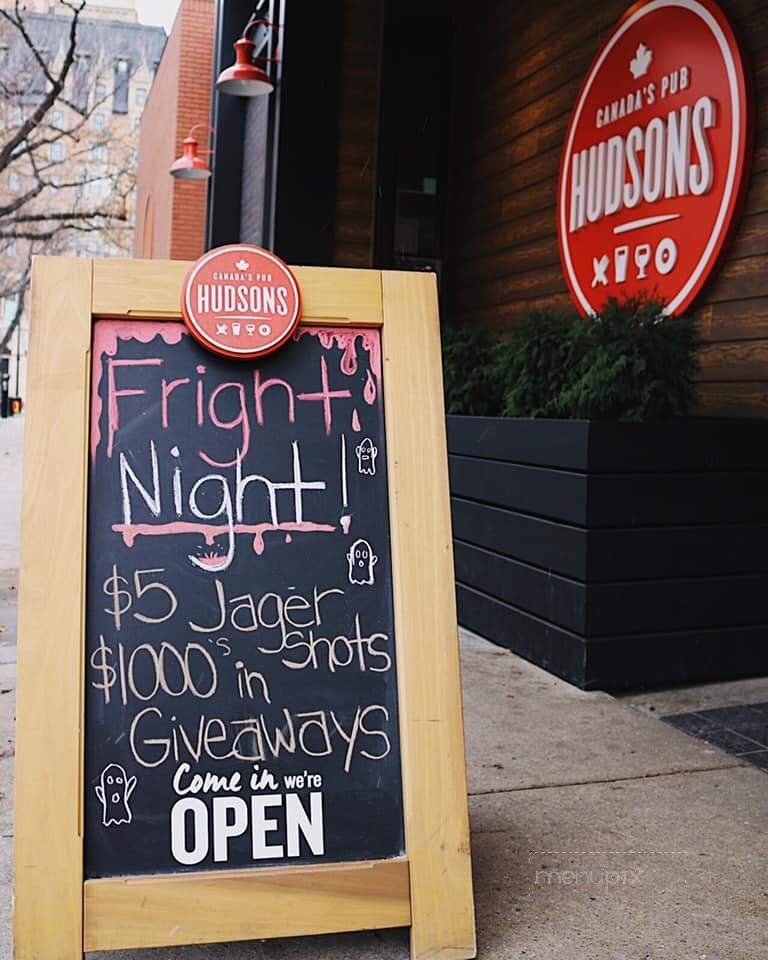 CANADA'S PUB
HUDSONS
CANADA'S PUB
HUDSONS
Fright
Night!
$5 Jager
Shots
$1000's in
Giveaways
Come in we're
OPEN
menupix